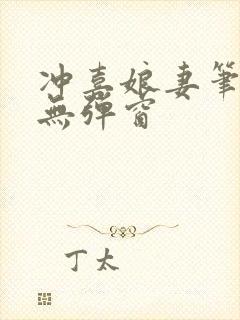 冲喜娘妻筆
無彈窗
丁太